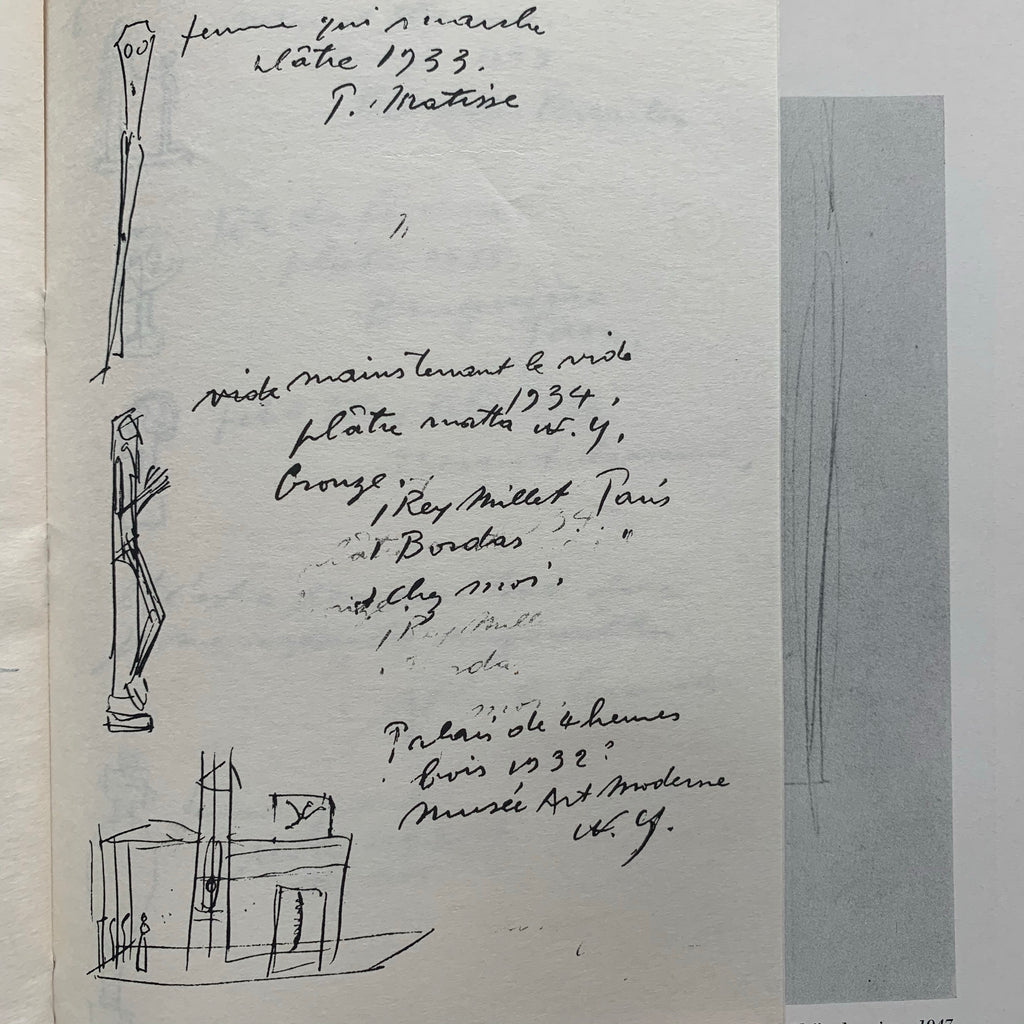 femme qui marche
plâtre 1933.
P. Matisse
vide maintenant le vide
1934.
plâtre matta N.Y.
bronze.
Rey Millet Paris
Bordas "
Chez moi.
Palais de 4 heures
bois 1932?
Musée Art Moderne
N.Y.
1947